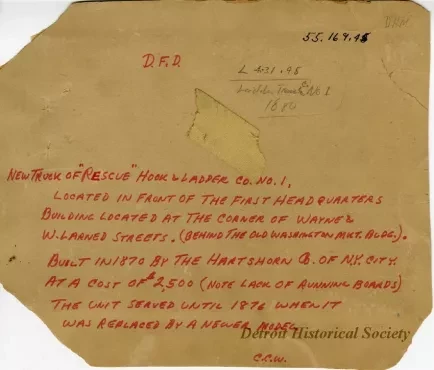 DRN
55.169.45
D.F.D.
L 4531.45
Ladder Truck Co No 1
1880
NEW TRUCK OF "RESCUE" HOOK & LADDER CO. NO. 1,
LOCATED IN FRONT OF THE FIRST HEADQUARTERS
BUILDING LOCATED AT THE CORNER OF WAYNE &
W. LARNED STREETS. (BEHIND THE OLD WASHINGTON MKT. BLDG).
BUILT IN 1870 BY THE HARTSHORN CO. OF N.Y. CITY
AT A COST OF $2,500 (NOTE LACK OF RUNNING BOARDS)
THE UNIT SERVED UNTIL 1876 WHEN IT
WAS REPLACED BY A NEWER MODEL
Detroit Historical Society
C.C.W.